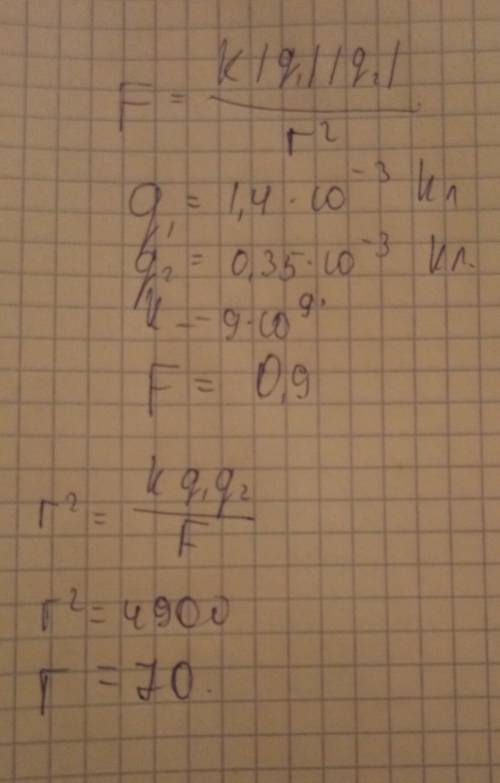 F = K|q₁||q₂| / r²
q₁ = 1,4 · 10⁻³ Кл
q₂ = 0,35 · 10⁻³ Кл.
k = 9 · 10⁹.
F = 0,9
r² = k q₁ q₂ / F
r² = 4900
r = 70.